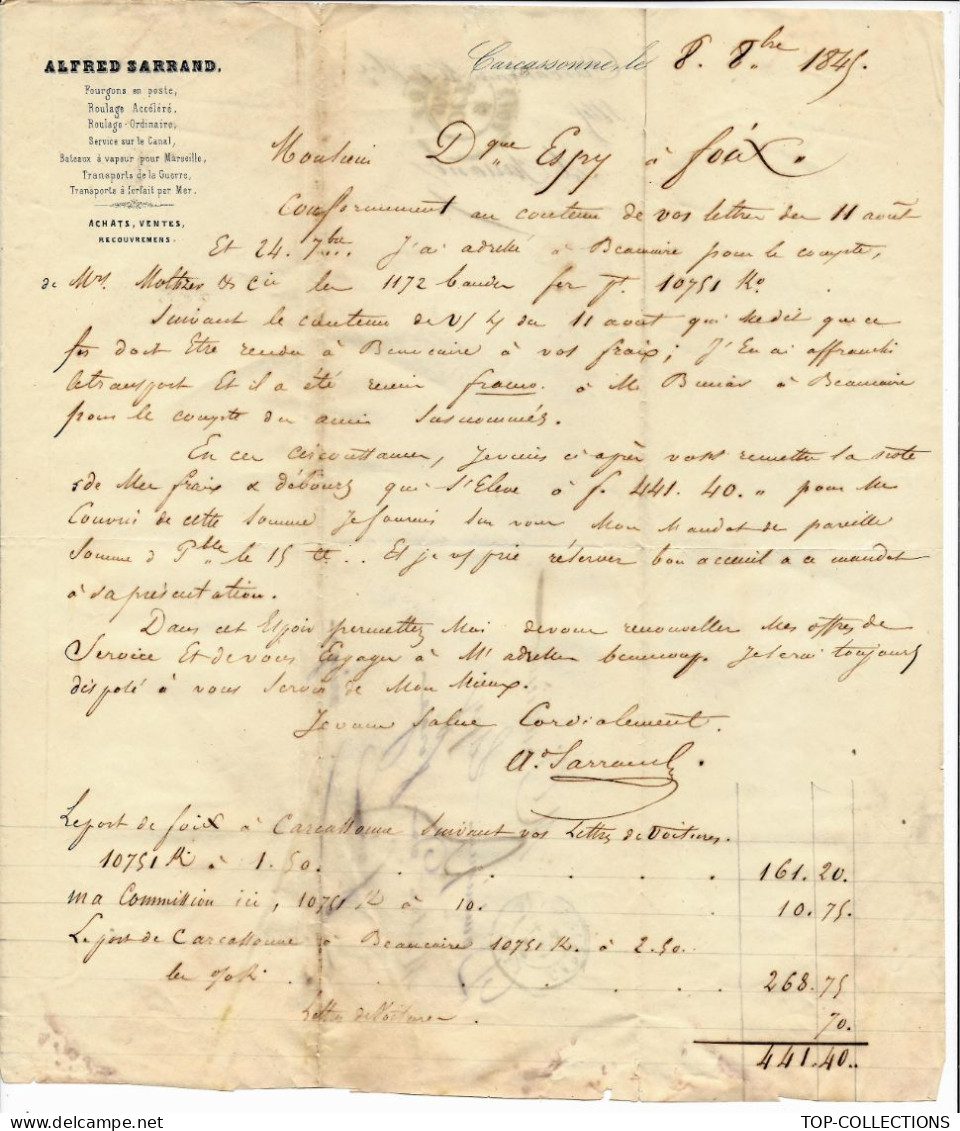 ALFRED SARRAND,
Fourgons en poste,
Roulage Accéléré.
Roulage Ordinaire,
Service sur le Canal,
Bateaux à vapeur pour Marseille,
Transports de la Guerre,
Transports à forfait par Mer.
ACHATS, VENTES,
RECOUVREMENS.
Carcassonne, le 8. 8bre 1845.
Monsieur Dque Espy à foix
Conformement au contenu de vos lettres des 11 août
Et 24. 7bre. J'ai adressé à Beaucaire pour le compte,
de Mrs. Moltzer & Cie les 1172 bandes fer pt. 10751 Ko
Suivant le contenu de du 11 août qui me dit que ce
fer doit Etre rendu à Beaucaire à vos fraix; J'En ai affranchi
le transport Et il a été remis franco. à Mr à Beaucaire
pour le compte des amis susnommés.
En ces circonstances, Je viens ci après vous remettre la note
de Mes frais & débours qui S'Eleve à f. 441. 40. " pour Me
Couvrir de cette Somme Je fournis Sur vous Mon Mandat de pareille
Somme à Pble le 15 ct... Et je vs prie réserver bon acceuil a ce mandat
à sa présentation.
Dans cet Espoir permettez Moi de vous renouveller Mes offres de
Service Et de vous Engager à M'adresser beaucoup. Je serai toujours
disposé à vous Servir de Mon Mieux.
Je vous Salue Cordialement.
Ad. Sarrand
Le port de foix à Carcassonne Suivant vos Lettres de Voitures.
10751 K à 1. 50. . . . . . 161. 20.
ma Commission ici, 10751 K à 10. . 10. 75.
Le port de Carcassonne à Beaucaire 10751 K. à 2. 50.
les % K. . . . . . 268. 75
Lettres de Voitures . 70.
441. 40.
TOP-COLLECTIONS